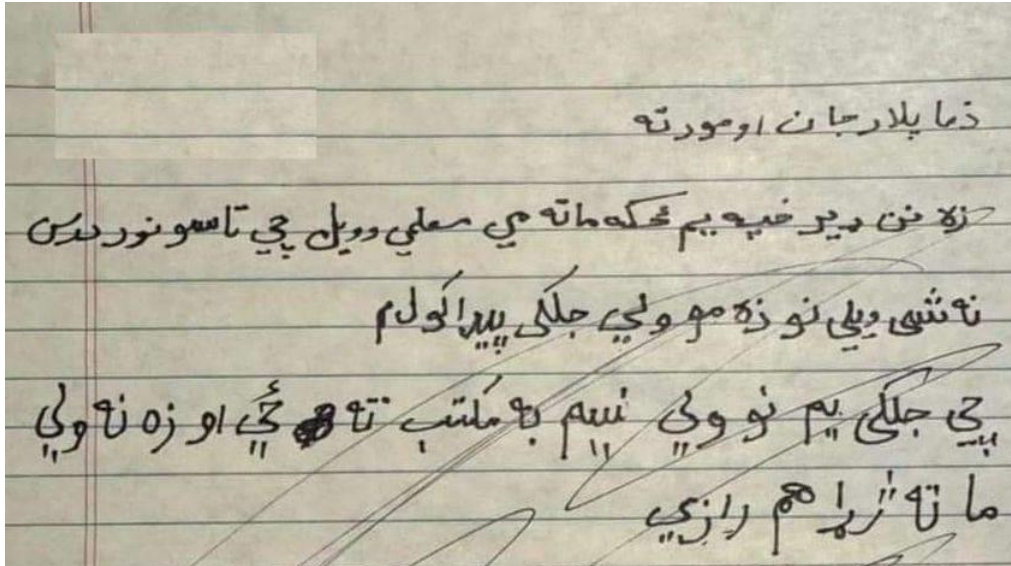 ذما پلار جان او مور ته
زه نن ډير خپه یم ځکه ماته مي معلمي وويل چي تاسو نور درس
نه شی ویلی نو زه مو ولي جلکی پیدا کولم
چي جلکی یم نو ولي نسیم به مکتب ته ځي او زه نه ولي
ما ته ژړا هم رازي